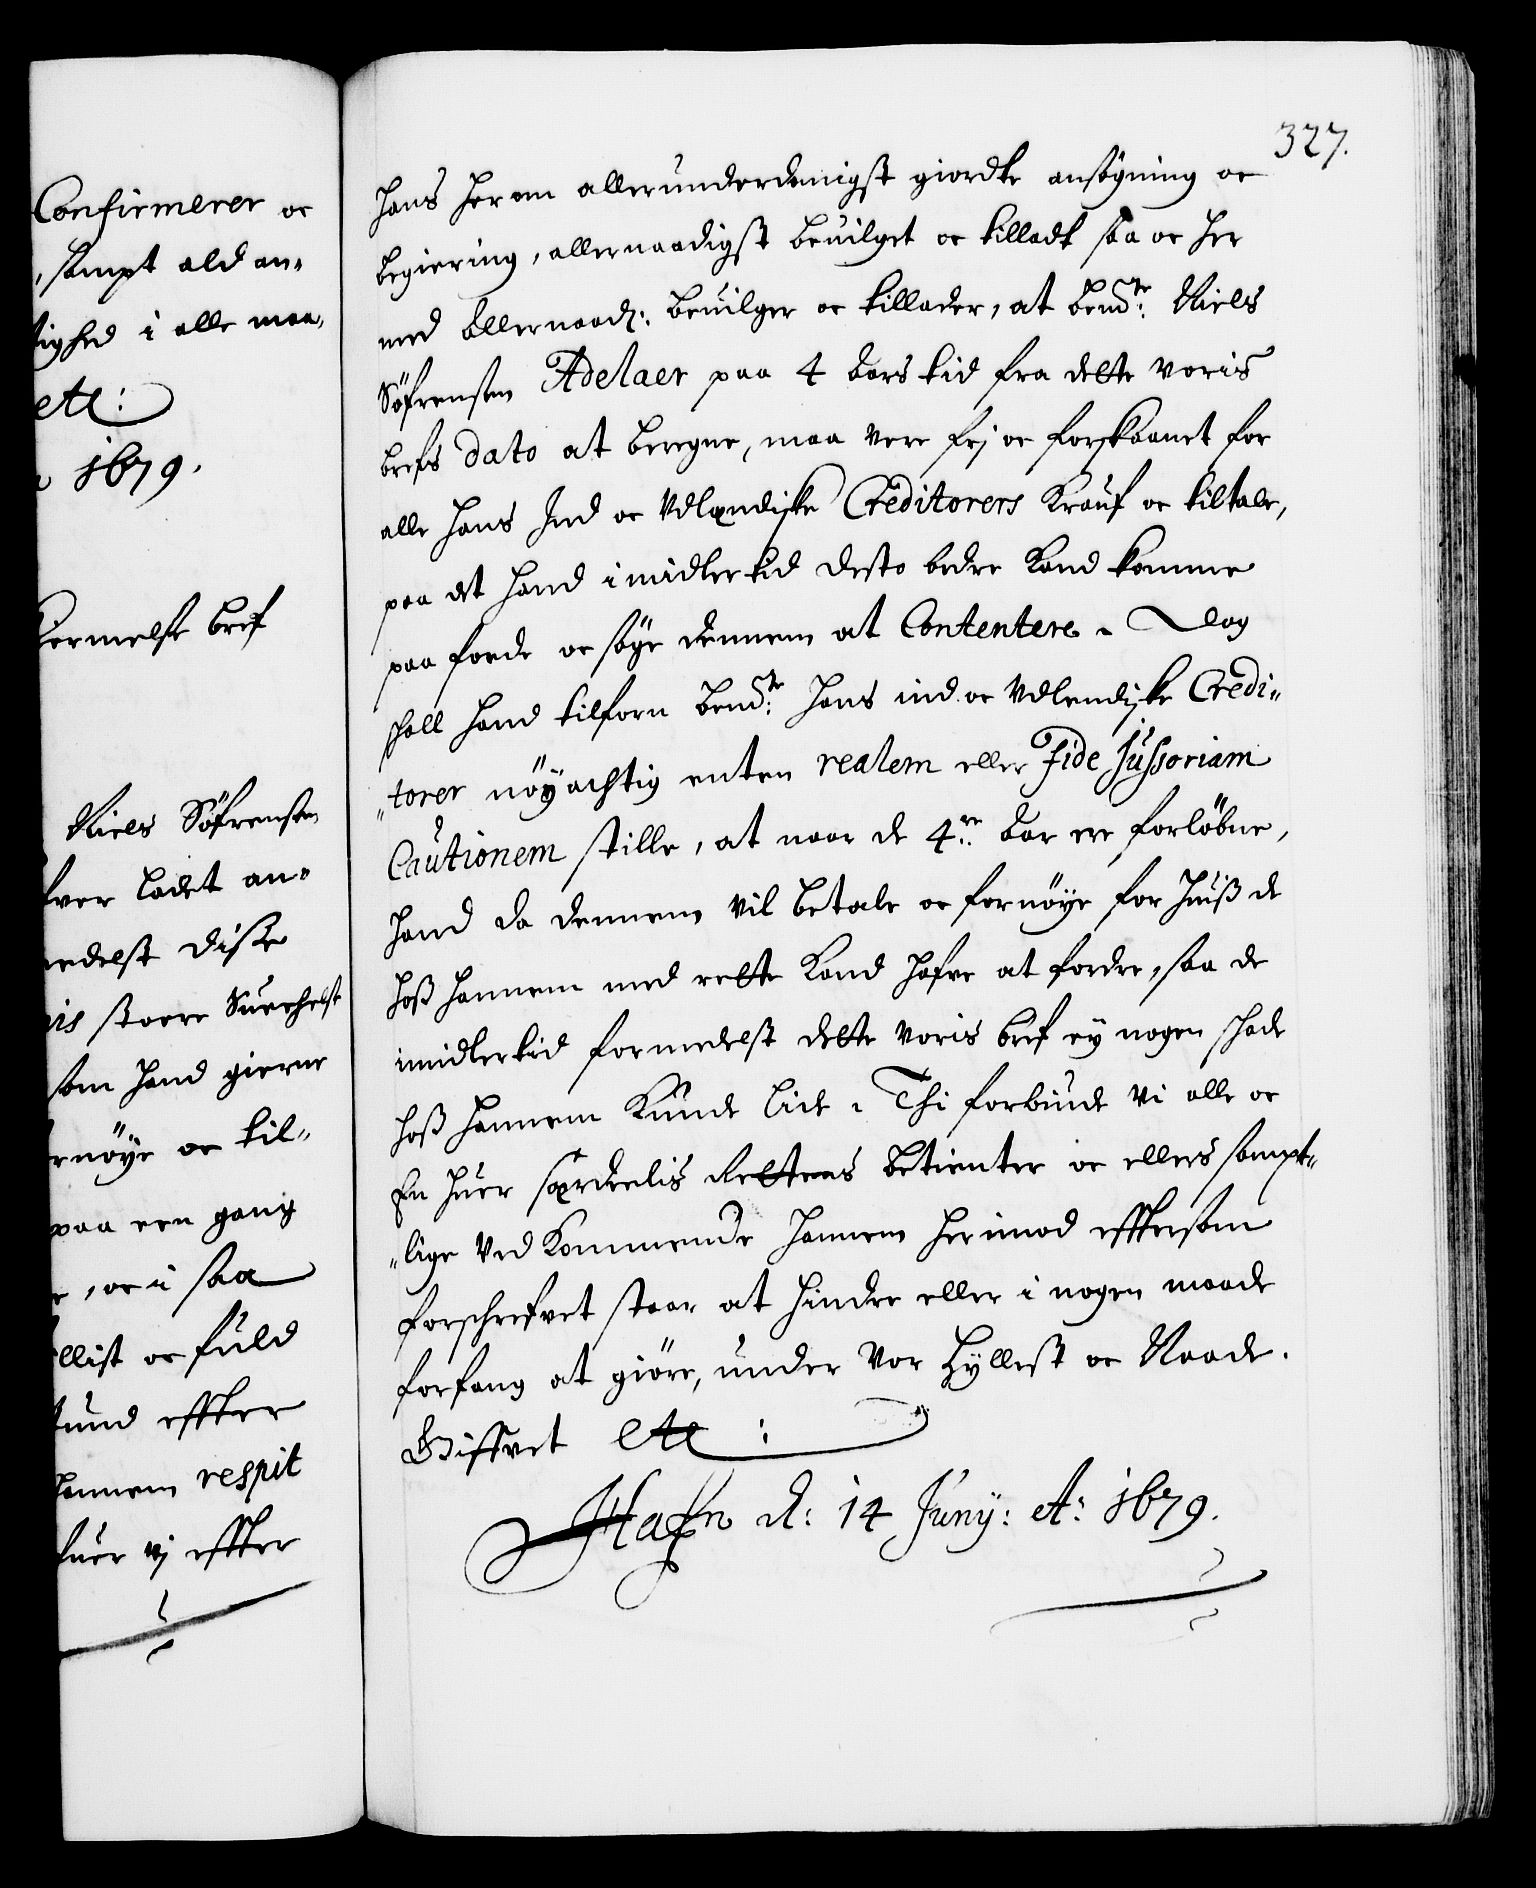 Confirmerer oc
, sampt ald an-
tighed i alle maa-
etc:
1679.
bref
Niels Söfrensen
lader an-
disse
store
som hand gierne
rnöye oc til-
paa een gang
, oc i saa
llist oc fuld
effter
hannem respit
vj effter
327.
hans herom allerunderdanigst giordte ansögning oc
begiering, allernaadigst beuilget oc tilladt saa oc her
med Allernaad: beuilger oc tillader, at bemte: Niels
Söfrensen Adelaer paa 4 Aars tid fra dette voris
brefs dato at beregne, maa vere frj oc forskaanet for
alle hans Ind oc Vdlændiske Creditorers Krauf oc tiltale,
paa det hand imidlertid desto bedre Kand komme
paa fode oc söge dennem at Contentere. Dog
skall hand tilforn bemte: hans ind oc Vdlendiske Credi-
torer nöyachtig enten realem eller Fide Jussoriam
Cautionem stille, at naar de 4re: Aar ere forlöbne,
hand da dennem vil betale oc fornöye for huiss de
hoss hannem med rette Kand hafve at fordre, saa de
imidlertid formedelst dette voris bref ey nogen skade
hoss hannem Kunde lide. Thi forbiude Vi alle oc
En huer særdeelis Rettens betienter oc ellers sampt-
lige Ved Kommende hannem herimod effter som
forschrefvet staar at hindre eller i nogen maade
forfang at giöre, under Vor Hyllest oc Naade.
Giffvet etc:
Hafn d: 14 Juny: Ao: 1679.